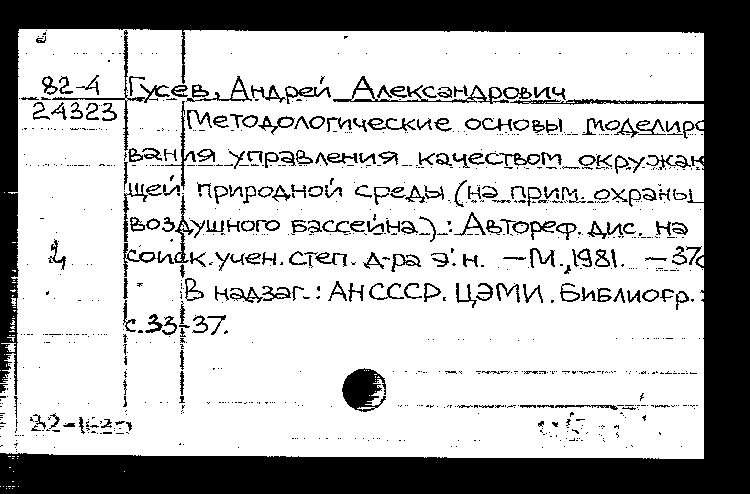 82-4 Гусев, Андрей Александрович
24323 Методологические основы моделиро
вания управления качеством окружаю
щей природной среды (на прим. охраны
воздушного бассейна): Автореф. дис. на
2 соиск. учен. степ. д-ра э. н. – М., 1981. – 37с
В надзаг.: АН СССР. ЦЭМИ. Библиогр.:
с. 33-37.